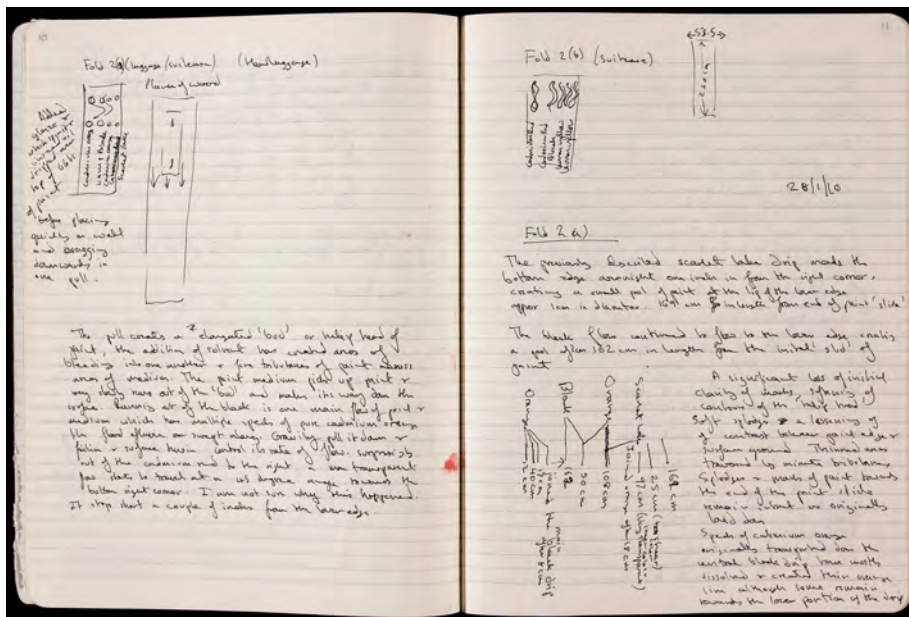 10
Fold 2(a) (luggage/suitcase) (Handluggage)
Placement
Added
glaze &
which
linseed oil
dripped onto
top of
of paint
before placing
quickly on wall
and dragging
downwards in
one pull.
The pull creates a elongated 'bud' or tulip head of
paint, the addition of solvent has created areas of
bleeding into one another & fine tributaries of paint across
areas of medium. The paint medium picks up paint &
very slowly runs out of the 'bud' and makes its way down the
surface. Running out of the black is one main flow of paint &
medium which has multiple specks of pure cadmium orange
the flow swept along. Gravity pull it down &
friction & surface tension control its rate of flow. Surprisingly
out of the cadmium red to the right a more transparent
flow starts to travel at a 45 degree angle towards the
bottom right corner. I am not sure why this happened.
It stop short a couple of inches from the lower edge.
11
Fold 2(b) (Suitcase)
53.5
Cadmium Red
Cadmium Red
Black
Lemon yellow
Lemon yellow
28/1/10
Fold 2 a)
The previously described scarlet lake drip made the
bottom edge overnight one inch in from the right corner,
creating a small pool of paint at the lip of the lower edge
approx 1cm in diameter. 168 cm in length from end of paint 'slide'
The black flow continued to flow to the lower edge, creating
a pool 162 cm in length from the initial 'slide' of
paint
Scarlet lake
Orange
Black
Orange
168 cm
25 cm
97 cm (very transparent)
Joined orange after 18 cm
108 cm
50 cm
162
joins the main black drip
after 8cm
40 cm
12 cm
A significant loss of initial
clarity of marks. Softening of
contours of the 'tulip head'
Soft splodges & a lessening of
of contrast between paint edge &
surface ground. Thinned areas
traversed by minute tributaries.
Splodges & marks of paint towards
the end of the paint slide
remain intact as originally
laid down
Specks of cadmium orange
originally transported down the
central black drip have mostly
dissolved & created thin orange
line although some remain
towards the lower portion of the drip